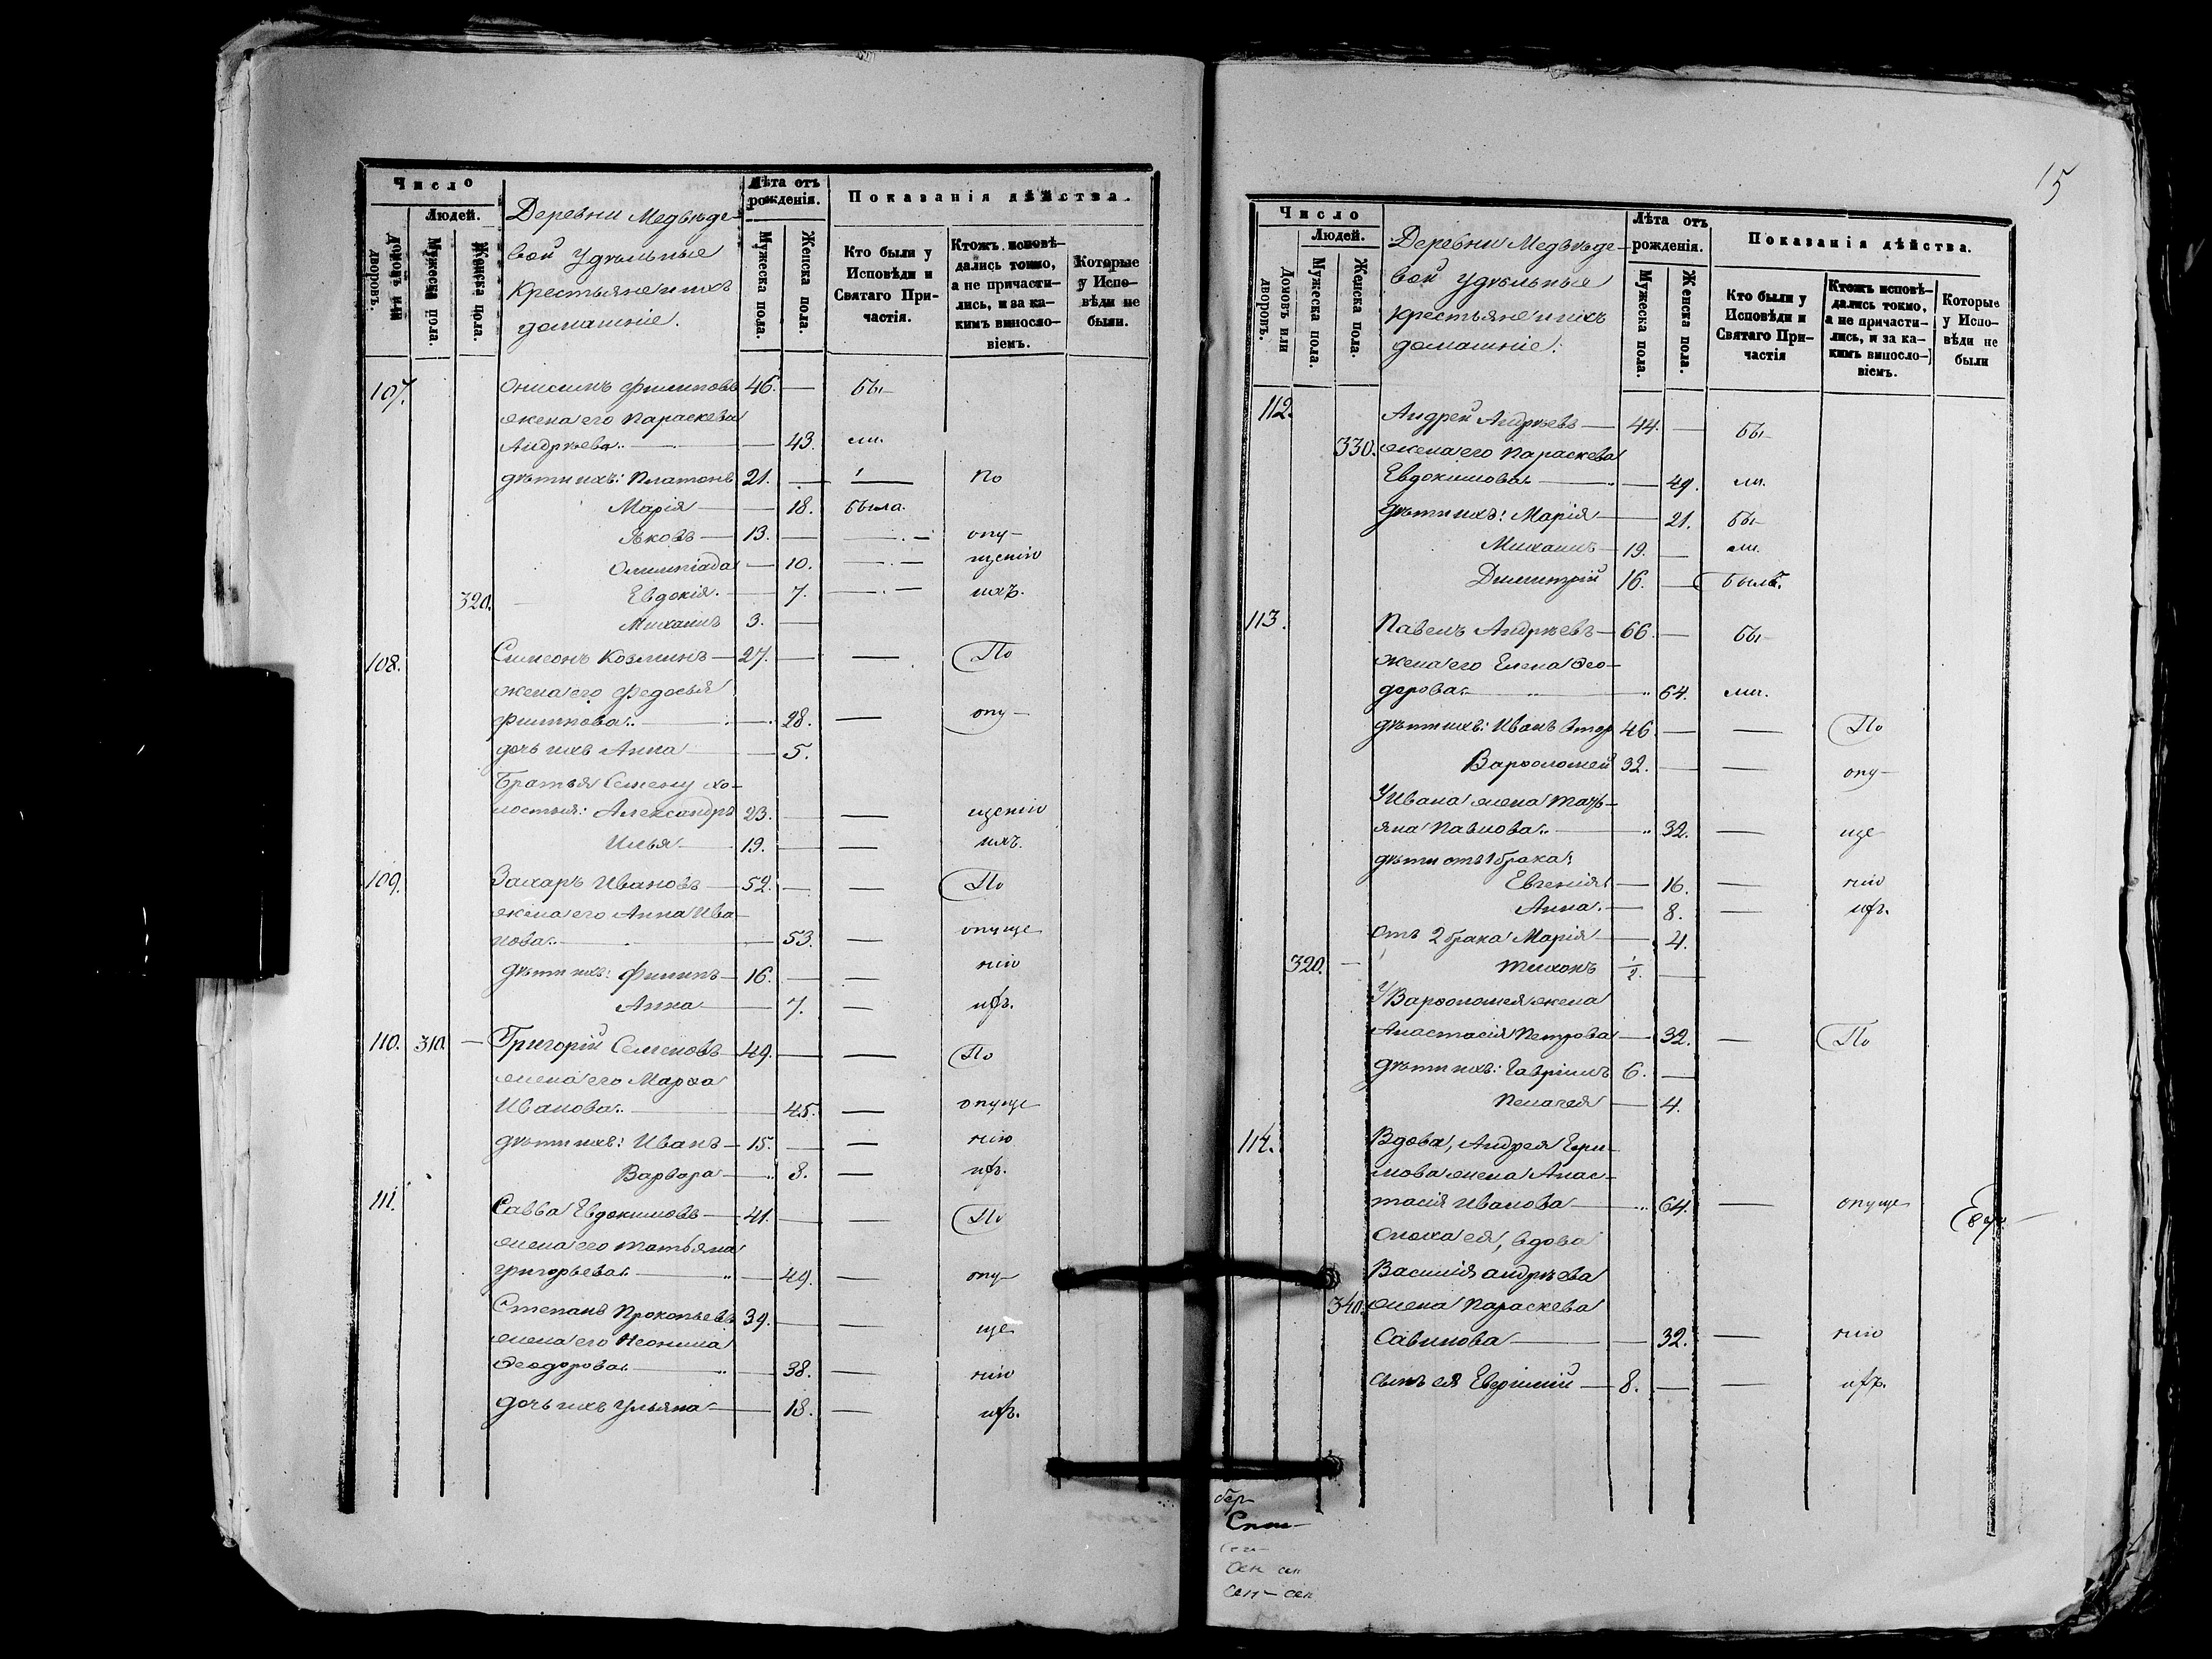 Число
Людей.
Домовъ или дворовъ.
Мужеска пола.
Женска пола.
Деревни Медвѣде-
вой Удѣльные
Крестьяне и ихъ
домашніе.
Лѣта отъ рожденія.
Мужеска пола.
Женска пола.
Показанія дѣйства.
Кто были у Исповѣди и Святаго При-
частія.
Ктожъ исповѣ-
дались токмо,
а не причасти-
лись, и за ка-
кимъ виносло-
віемъ.
Которые
у Испо-
вѣди не
были.
107. Онисимъ Филиповъ 46. — бы-
жена его Параскева
Андрѣева. — 43. ли.
дѣти ихъ: Платонъ 21. — — По
Марія — 18. была.
Яковъ — 13. — — опу-
Олимпіада — 10. — щенію
320. Евдокія. — 7. — ихъ.
Михаилъ 3. —
108. Симеонъ Козминъ — 27. — — По
жена его Федосья
Филипова. — 28. — опу-
дочь ихъ Анна — 5.
Братья Семену хо-
лостыя: Александръ 23. — — щенію
Илья — 19. — — ихъ.
109. Захаръ Ивановъ — 52. — — По
жена его Анна Ива-
нова. — 53. — опуще
дѣти ихъ: Филипъ — 16. — — нію
Анна — 7. — ихъ.
110. 310. — Григорій Семеновъ — 49. — — По
жена его Марѳа
Иванова. — 45. — опуще
дѣти ихъ: Иванъ — 15. — — нію
Варвара — 8. — ихъ.
111. Савва Евдокимовъ — 41. — — По
жена его Татьяна
Григорьева. — 49. — опу-
Степанъ Прокопьевъ 39. — — ще
жена его Неонила
Ѳеодорова. — 38. — нію
дочь ихъ Ульяна — 18. — ихъ.
15
Число
Людей.
Домовъ или дворовъ.
Мужеска пола.
Женска пола.
Деревни Медвѣде-
вой Удѣльные
крестьяне и ихъ
домашніе.
Лѣта отъ рожденія.
Мужеска пола.
Женска пола.
Показанія дѣйства.
Кто были у Исповѣди и Святаго При-
частія
Ктожъ исповѣ-
дались токмо,
а не причасти-
лись, и за ка-
кимъ виносло-
віемъ.
Которые
у Испо-
вѣди не
были
112. Андрей Андрѣевъ — 44. — бы-
330. жена его Параскева
Евдокимова. — 49. ли.
дѣти ихъ: Марія — 21. бы-
Михаилъ — 19. — ли.
Димитрій 16. — былъ.
113. Павелъ Андрѣевъ — 66. — бы-
жена его Елена Ѳео-
дорова. — 64. ли.
дѣти ихъ: Иванъ Втор 46. — — По
Варѳоломей 32. — — опу-
У Ивана жена Тать-
яна Павлова. — 32. — ще
дѣти отъ 1 брака:
Евгенія — 16. — нію
Анна. — 8. — ихъ.
отъ 2 брака Марія — 4.
320. — Тихонъ 1/2. —
У Варѳоломея жена
Анастасія Петрова — 32. — По
дѣти ихъ: Гавріилъ 6. —
Пелагея — 4.
114. Вдова, Андрея Ефи-
мова жена Анас-
тасія Иванова — 64. — опуще
сноха ея, вдова
Василія Андрѣева
340. жена Параскева
Савинова — 32. — нію
сынъ ея Евфимій — 8. — — ихъ.
Спи-
сен сен
сен — сен